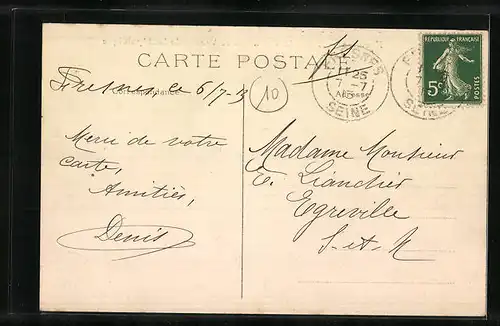 CARTE POSTALE
REPUBLIQUE FRANÇAISE
5c POSTES
FRESNES
SEINE
Fresnes le 6/7-13
Correspondance
10
Merci de votre
carte,
Amitiés,
Denis
Madame Monsieur
E. Liandier
Egreville
S-et-M